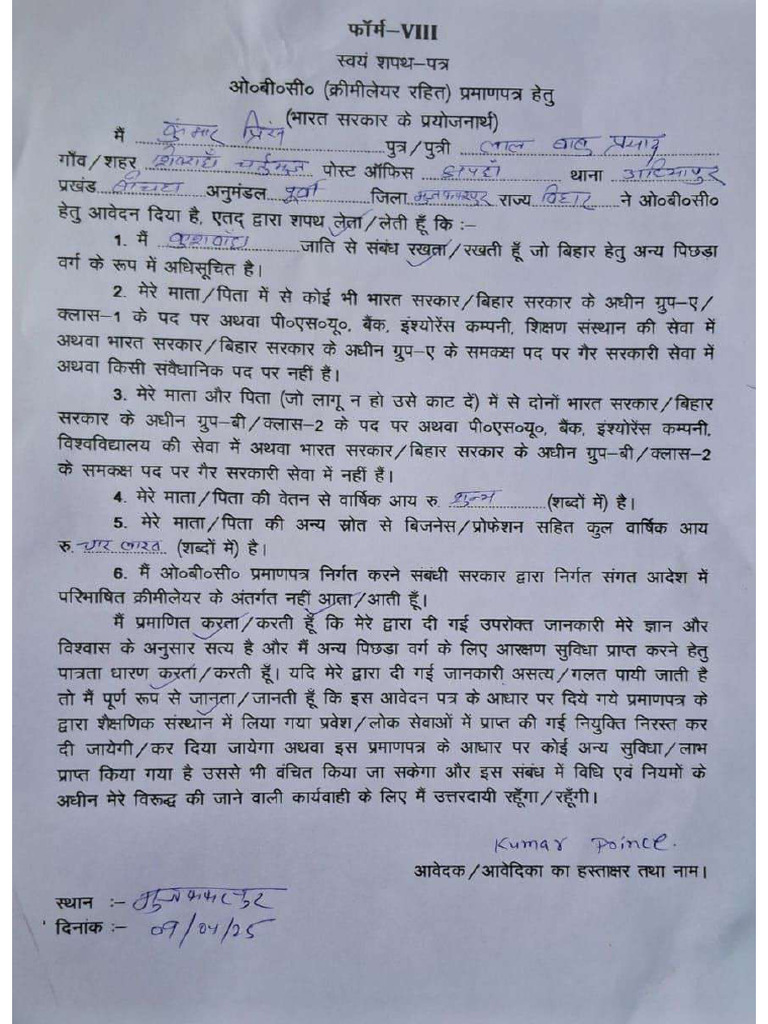 फॉर्म–VIII
स्वयं शपथ–पत्र
ओ०बी०सी० (क्रीमीलेयर रहित) प्रमाणपत्र हेतु
(भारत सरकार के प्रयोजनार्थ)
मैं कुमार प्रिंस पुत्र/पुत्री लाल बाबु प्रसाद
गाँव/शहर चतुर्भुज पोस्ट ऑफिस झपहाँ थाना अहियापुर
प्रखंड बोचहा अनुमंडल पूर्वी जिला मुजफ्फरपुर राज्य बिहार ने ओ०बी०सी०
हेतु आवेदन दिया है, एतद् द्वारा शपथ लेता/लेती हूँ कि :–
1. मैं कुशवाहा जाति से संबंध रखता/रखती हूँ जो बिहार हेतु अन्य पिछड़ा
वर्ग के रूप में अधिसूचित है।
2. मेरे माता/पिता में से कोई भी भारत सरकार/बिहार सरकार के अधीन ग्रुप–ए/
क्लास–1 के पद पर अथवा पी०एस०यू०, बैंक, इंश्योरेंस कम्पनी, शिक्षण संस्थान की सेवा में
अथवा भारत सरकार/बिहार सरकार के अधीन ग्रुप–ए के समकक्ष पद पर गैर सरकारी सेवा में
अथवा किसी संवैधानिक पद पर नहीं हैं।
3. मेरे माता और पिता (जो लागू न हो उसे काट दें) में से दोनों भारत सरकार/बिहार
सरकार के अधीन ग्रुप–बी/क्लास–2 के पद पर अथवा पी०एस०यू०, बैंक, इंश्योरेंस कम्पनी,
विश्वविद्यालय की सेवा में अथवा भारत सरकार/बिहार सरकार के अधीन ग्रुप–बी/क्लास–2
के समकक्ष पद पर गैर सरकारी सेवा में नहीं हैं।
4. मेरे माता/पिता की वेतन से वार्षिक आय रु. शुन्य (शब्दों में) है।
5. मेरे माता/पिता की अन्य स्रोत से बिजनेस/प्रोफेशन सहित कुल वार्षिक आय
रु. चार लाख (शब्दों में) है।
6. मैं ओ०बी०सी० प्रमाणपत्र निर्गत करने संबंधी सरकार द्वारा निर्गत संगत आदेश में
परिभाषित क्रीमीलेयर के अंतर्गत नहीं आता/आती हूँ।
मैं प्रमाणित करता/करती हूँ कि मेरे द्वारा दी गई उपरोक्त जानकारी मेरे ज्ञान और
विश्वास के अनुसार सत्य है और मैं अन्य पिछड़ा वर्ग के लिए आरक्षण सुविधा प्राप्त करने हेतु
पात्रता धारण करता/करती हूँ। यदि मेरे द्वारा दी गई जानकारी असत्य/गलत पायी जाती है
तो मैं पूर्ण रूप से जानता/जानती हूँ कि इस आवेदन पत्र के आधार पर दिये गये प्रमाणपत्र के
द्वारा शैक्षणिक संस्थान में लिया गया प्रवेश/लोक सेवाओं में प्राप्त की गई नियुक्ति निरस्त कर
दी जायेगी/कर दिया जायेगा अथवा इस प्रमाणपत्र के आधार पर कोई अन्य सुविधा/लाभ
प्राप्त किया गया है उससे भी वंचित किया जा सकेगा और इस संबंध में विधि एवं नियमों के
अधीन मेरे विरूद्ध की जाने वाली कार्यवाही के लिए मैं उत्तरदायी रहूँगा/रहूँगी।
Kumar Prince.
आवेदक/आवेदिका का हस्ताक्षर तथा नाम।
स्थान :– मुजफ्फरपुर
दिनांक :– 09/04/25